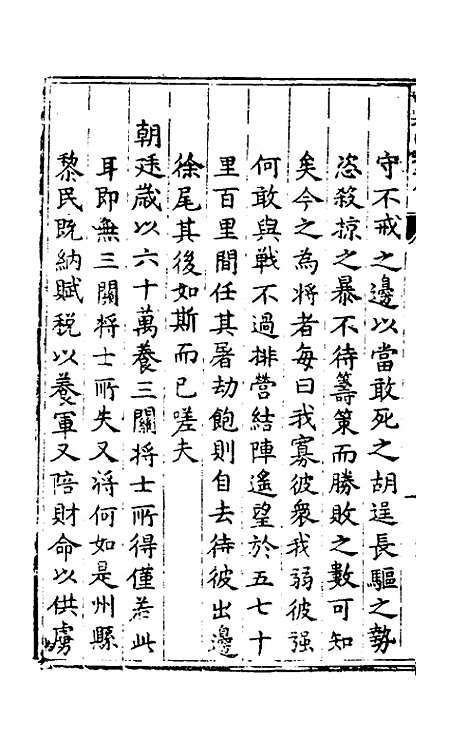 守不戒之邊以當敢死之胡逞長驅之勢
恣殺掠之暴不待籌策而勝敗之數可知
矣今之為將者每曰我寡彼衆我弱彼强
何敢與戰不過排營結陣遙望於五七十
里百里間任其屠劫飽則自去待彼出邊
徐尾其後如斯而已嗟夫
朝廷歲以六十萬養三關將士所得僅若此
耳即無三關將士所失又將何如是州縣
黎民既納賦稅以養軍又陪財命以供虜